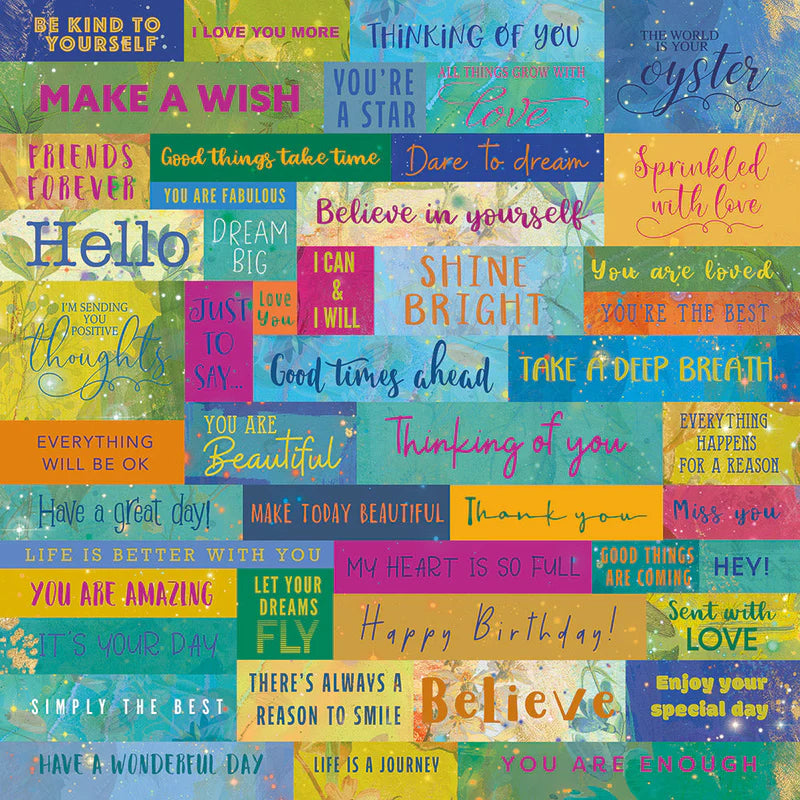 BE KIND TO
YOURSELF
I LOVE YOU MORE
THINKING OF YOU
THE WORLD
IS YOUR
oyster
MAKE A WISH
YOU'RE
A STAR
ALL THINGS GROW WITH
love
FRIENDS
FOREVER
Good things take time
Dare to dream
Sprinkled
with love
YOU ARE FABULOUS
Believe in yourself
Hello
DREAM
BIG
I CAN
&
I WILL
SHINE
BRIGHT
You are loved
YOU'RE THE BEST
I'M SENDING
YOU
POSITIVE
thoughts
JUST
TO
SAY...
Love
You
Good times ahead
TAKE A DEEP BREATH
EVERYTHING
WILL BE OK
YOU ARE
Beautiful
Thinking of you
EVERYTHING
HAPPENS
FOR A REASON
Have a great day!
MAKE TODAY BEAUTIFUL
Thank you
Miss you
LIFE IS BETTER WITH YOU
MY HEART IS SO FULL
GOOD THINGS
ARE COMING
HEY!
YOU ARE AMAZING
LET YOUR
DREAMS
FLY
Happy Birthday!
Sent with
LOVE
IT'S YOUR DAY
SIMPLY THE BEST
THERE'S ALWAYS A
REASON TO SMILE
Believe
Enjoy your
special day
HAVE A WONDERFUL DAY
LIFE IS A JOURNEY
YOU ARE ENOUGH